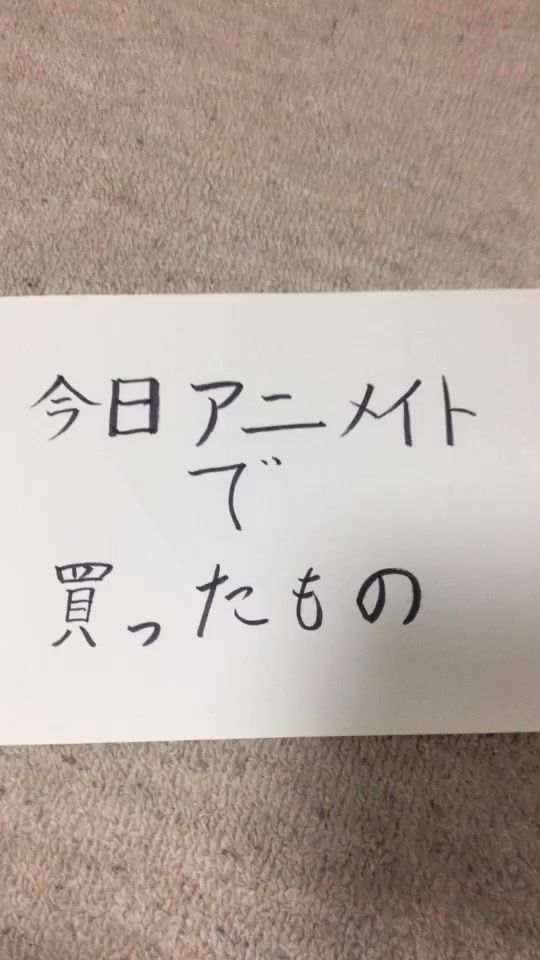 今日アニメイト
で
買ったもの